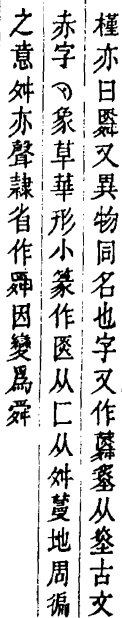 槿亦曰䑞又異物同名也字又作蕣䑞从㙓古文
赤字𠂹象草華形小篆作匫从匚从舛蔓地周徧
之意舛亦聲隷省作䑞因變爲舜